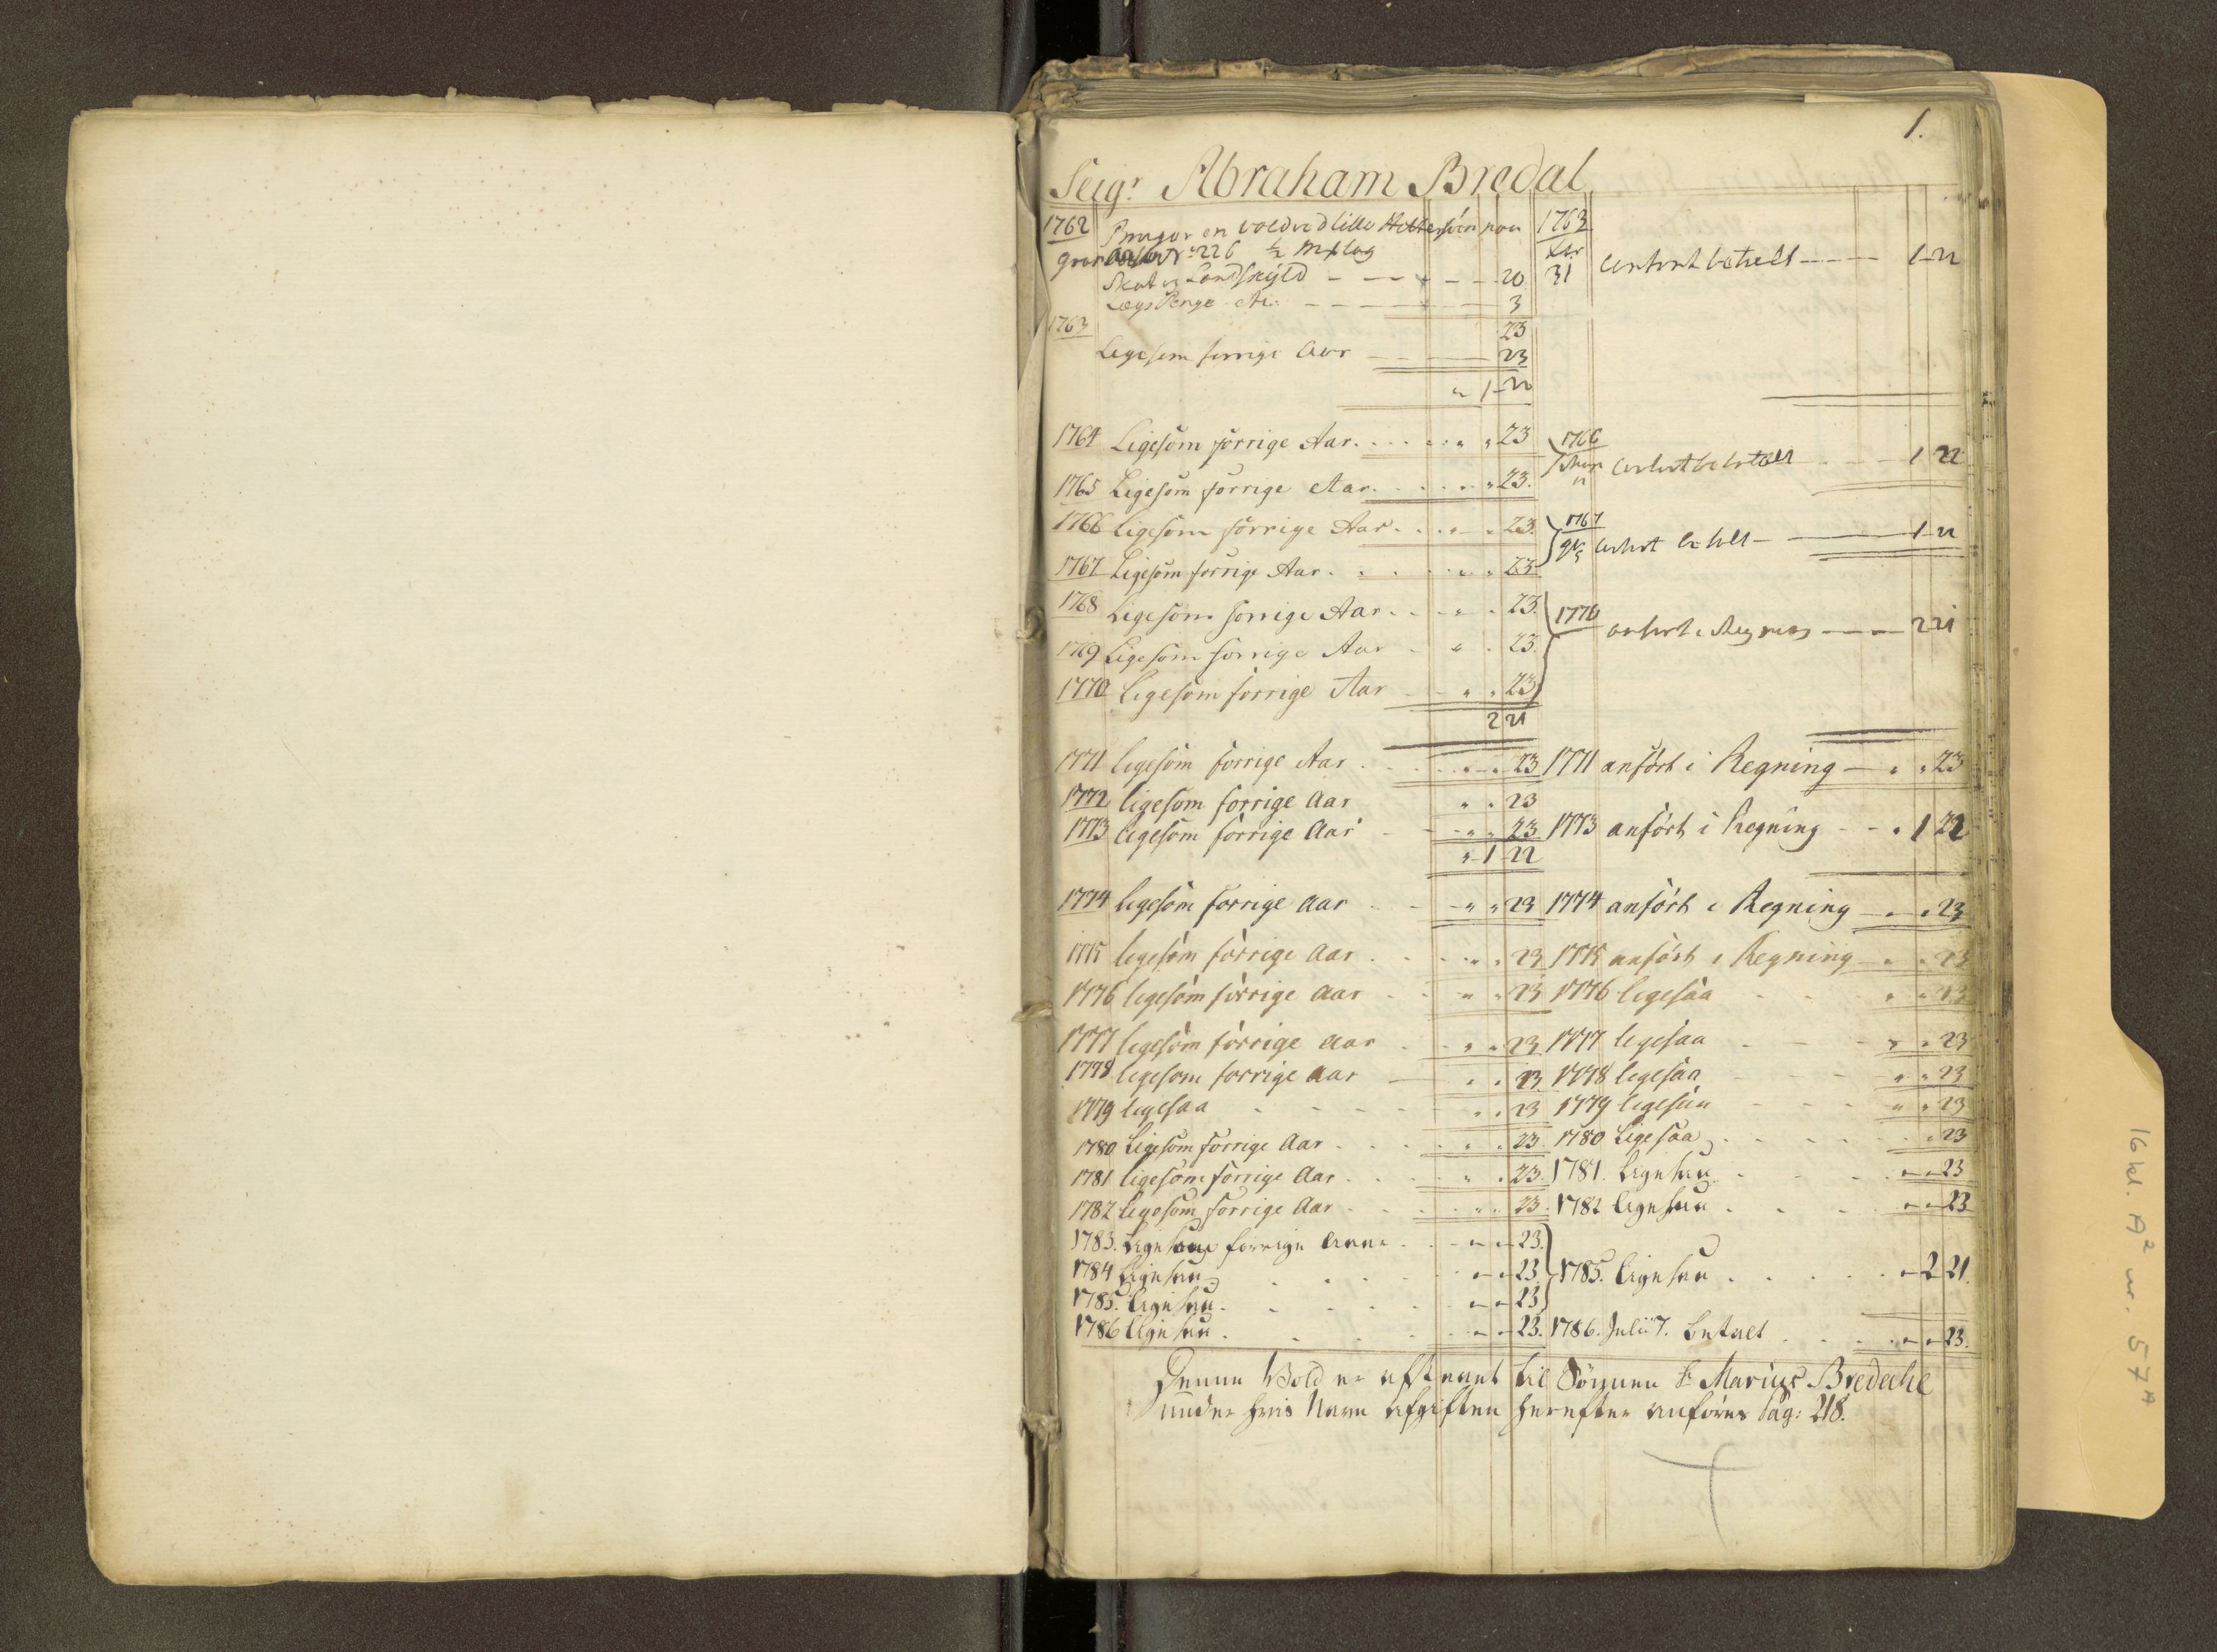 1.
Seigr Abraham Bredal
1762 Bruger en voed ved lille
No 226 ½ Mxlag
Skat og Landskyld - - - 20
Lægs Penge - - - 3
23
1763
Ligesom forrige Aar - 23
" 1 - 22
1763
31 betalt - - - 1 - 22
1764 Ligesom förrige Aar. . . . " " 23
1765 Ligesom forrige Aar. . . " " 23.
1766 1 22
1766 Ligesom förrige Aar. . . " " 23.
1767 Ligesom forrige Aar. . . " " 23
1767 betalt - - 1 - 22
1768 Ligesom forrige Aar. . . " . 23.
1769 Ligesom forrige Aar - " . 23.
1770 Ligesom forrige Aar - " " 23
2 21
1770 - - 2 21
1771 ligesom forrige Aar . . " " 23 1771 anfört i Regning - " " 23
1772 ligesom forrige Aar " " 23
1773 ligesom forrige Aar - " " 23 1773 anfört i Regning - - " 1 22
" 1 - 22
1774 ligesom forrige aar - - " " 23 1774 anfört i Regning - " " 23
1775 ligesom förrige aar . . " " 23 1775 anfört i Regning - " " 23
1776 ligesom förrige aar . . " " 23 1776 ligesaa . . " " 23
1777 ligesom förrige aar . . " " 23 1777 ligesaa - - - " " 23
1778 ligesom forrige aar - " " 23 1778 ligesaa - - - " " 23
1779 ligesaa - - - - " " 23 1779 ligesaa - - - " " 23
1780 Ligesom forrige Aar . . . " " 23. 1780 Ligesaa . . . . " 23
1781 ligesom forrige Aar . . . " " 23. 1781. Ligesaa . . . " " 23
1782 ligesom forrige Aar . . . " " 23. 1782 ligesaa . . . " " 23
1783. Ligesom forrige Aar . . " " 23.
1784 Ligesaa . . . . " " 23. 1785. ligesaa . . . . " 2 21.
1785. ligesaa . . . . " " 23
1786 ligesaa . . . . " " 23. 1786. Julii 7. betalt . . . " " 23.
Denne Vold er afstaaet til Sönnen Sr Marius Bredahl
under hvis Navn Afgiften herefter anföres Pag: 218.
16 kl. A2 nr. 57A